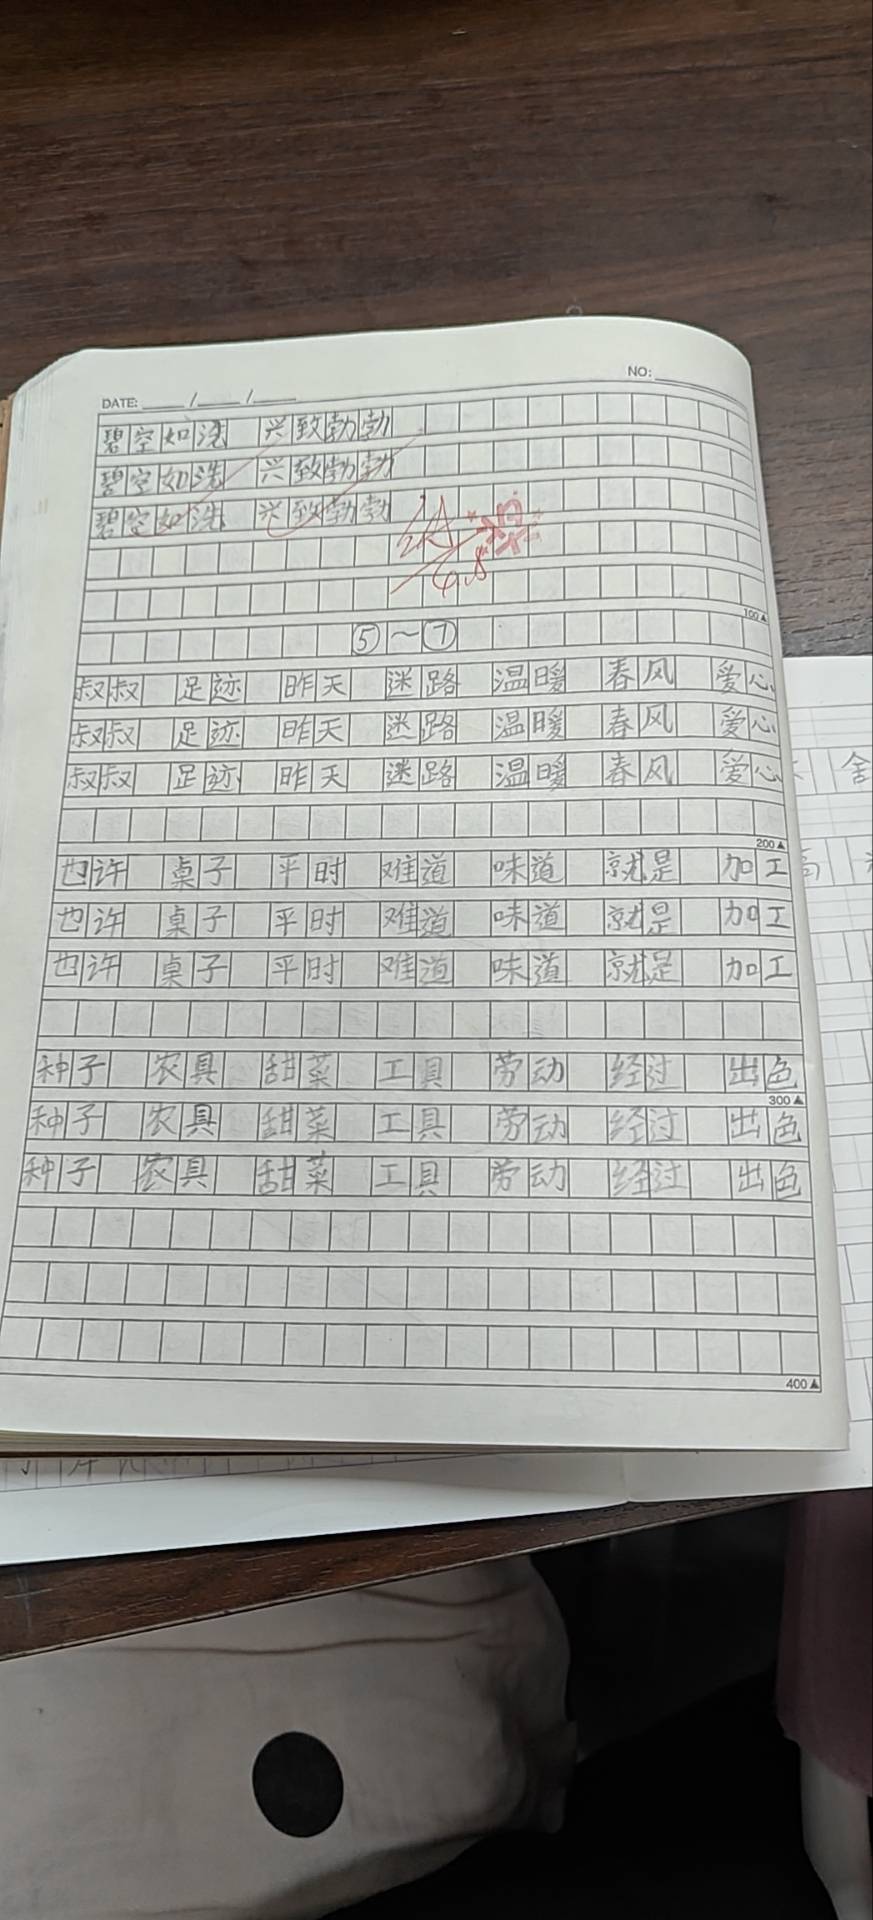 NO:
DATE: / /
碧空如洗 兴致勃勃
碧空如洗 兴致勃勃
碧空如洗 兴致勃勃
4.8
100▲
⑤~⑦
叔叔 足迹 昨天 迷路 温暖 春风 爱心
叔叔 足迹 昨天 迷路 温暖 春风 爱心
叔叔 足迹 昨天 迷路 温暖 春风 爱心
200▲
也许 桌子 平时 难道 味道 就是 加工
也许 桌子 平时 难道 味道 就是 加工
也许 桌子 平时 难道 味道 就是 加工
种子 农具 甜菜 工具 劳动 经过 出色
300▲
种子 农具 甜菜 工具 劳动 经过 出色
种子 农具 甜菜 工具 劳动 经过 出色
400▲
舍
高